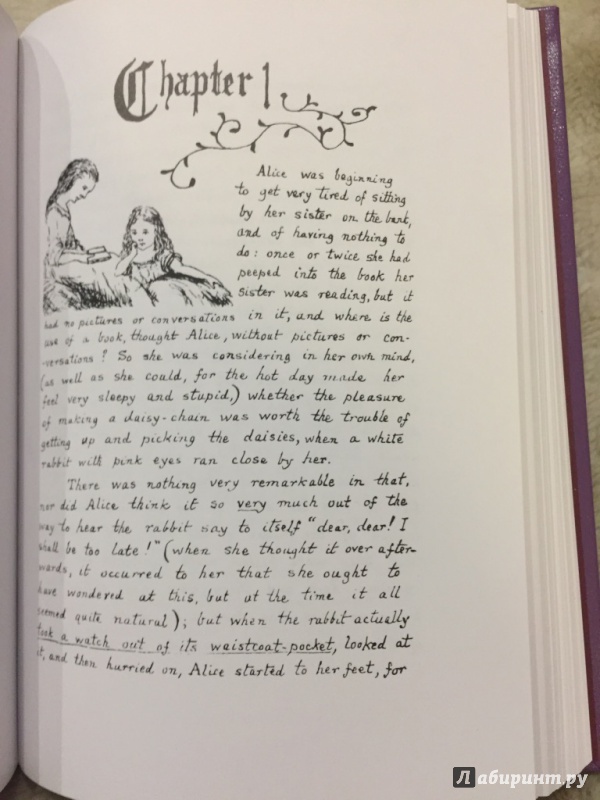 Chapter 1
Alice was beginning
to get very tired of sitting
by her sister on the bank,
and of having nothing to
do: once or twice she had
peeped into the book her
sister was reading, but it
had no pictures or conversations in it, and where is the
use of a book, thought Alice, without pictures or con-
-versations? So she was considering in her own mind,
(as well as she could, for the hot day made her
feel very sleepy and stupid,) whether the pleasure
of making a daisy-chain was worth the trouble of
getting up and picking the daisies, when a white
rabbit with pink eyes ran close by her.
There was nothing very remarkable in that,
nor did Alice think it so very much out of the
way to hear the rabbit say to itself "dear, dear! I
shall be too late!" (when she thought it over after-
wards, it occurred to her that she ought to
have wondered at this, but at the time it all
seemed quite natural); but when the rabbit actually
took a watch out of its waistcoat-pocket, looked at
it, and then hurried on, Alice started to her feet, for
Лабиринт.ру